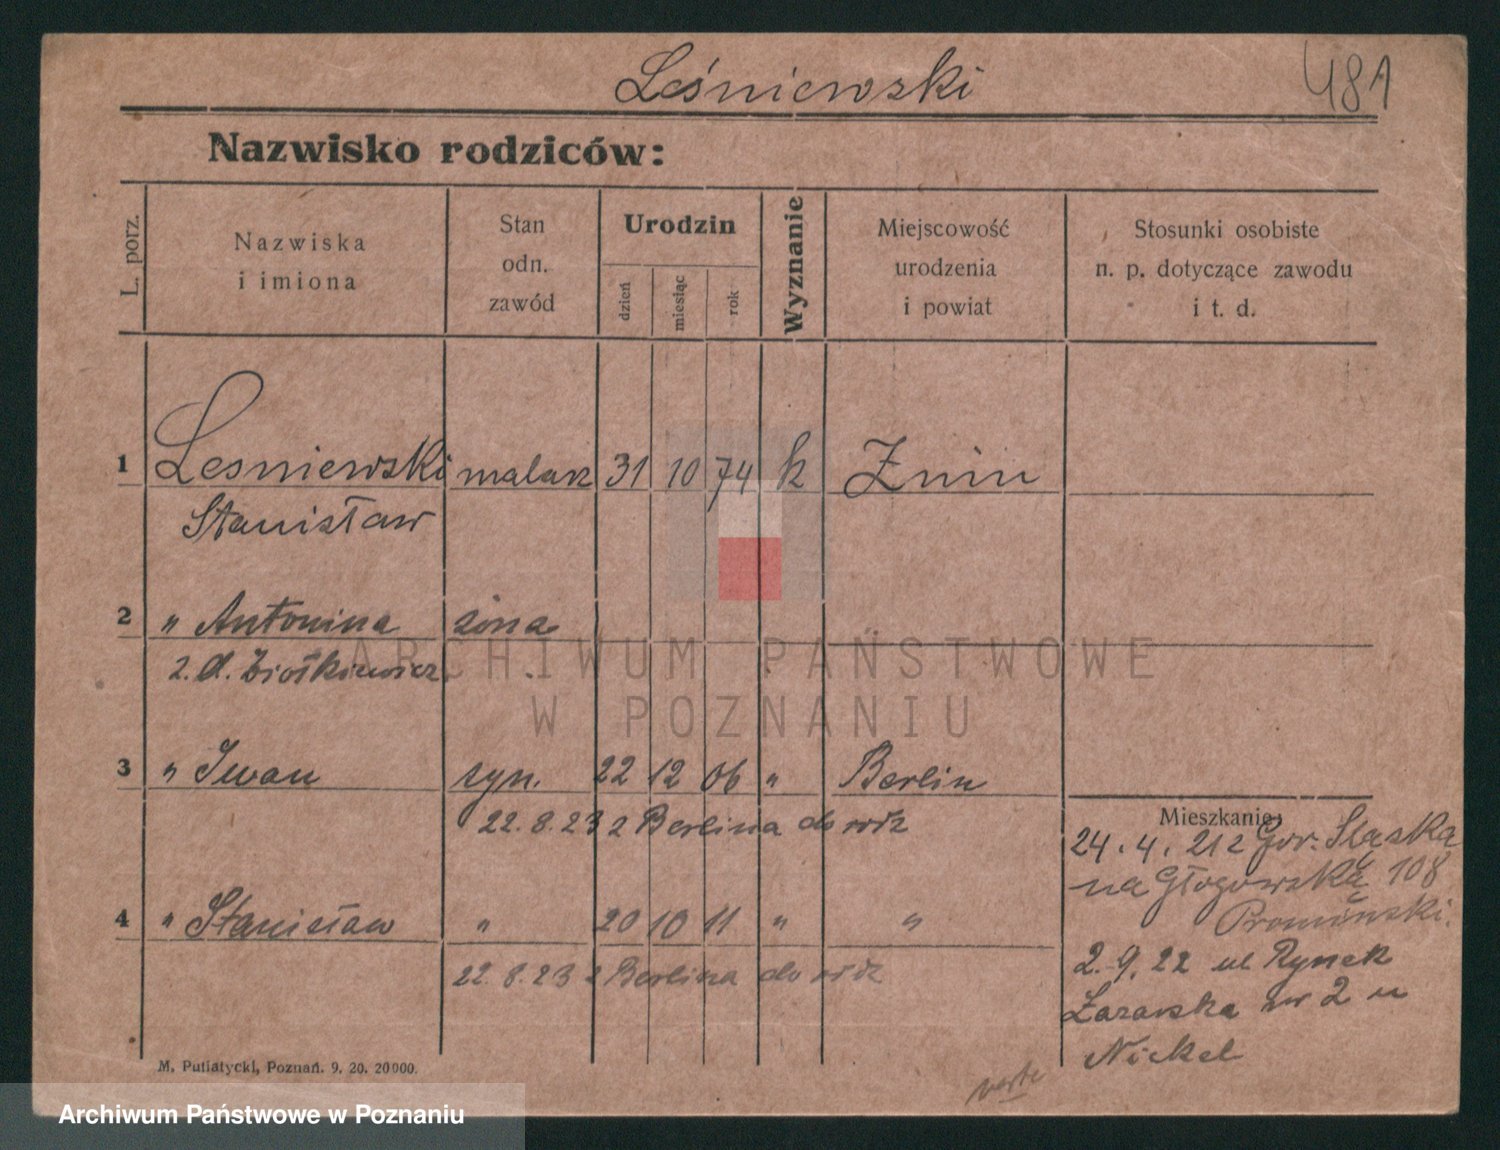 Leśniewski
481
Nazwisko rodziców:
L. porz.
Nazwiska
i imiona
Stan
odn.
zawód
Urodzin
dzień
miesiąc
rok
Wyznanie
Miejscowość
urodzenia
i powiat
Stosunki osobiste
n. p. dotyczące zawodu
i t. d.
1 Lesniewski malarz 31 10 74 k Znin
Stanisław
2 " Antonina żona
z. d. Ziółkiewicz
3 " Iwan syn. 22 12 06 " Berlin
22.8.23 z Berlina do rodz
4 " Stanisław " 20 10 11 " "
22.8.23 z Berlina do rodz
Mieszkanie:
24.4.21 z Gór. Sląska
na Głogowską 108
2.9.22 ul Rynek
Łazarska nr 2 u
Nickel
verte
M. Putiatycki, Poznań. 9. 20. 20000.
ARCHIWUM PAŃSTWOWE
W POZNANIU
Archiwum Państwowe w Poznaniu